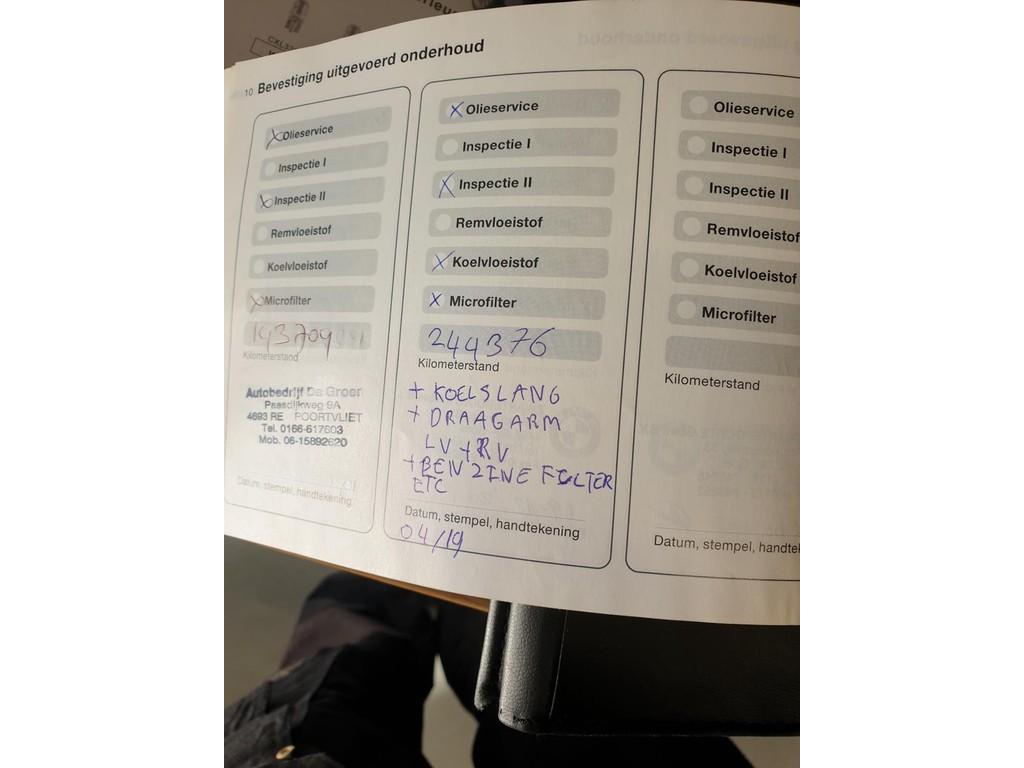 10 Bevestiging uitgevoerd onderhoud
Olieservice
Inspectie I
Inspectie II
Remvloeistof
Koelvloeistof
Microfilter
Kilometerstand
Autobedrijf De Groer
Paasdijkweg 9A
4693 RE POORTVLIET
Tel. 0166-617603
Mob. 06-15892620
Datum, stempel, handtekening
Olieservice
Inspectie I
Inspectie II
Remvloeistof
Koelvloeistof
Microfilter
244376
Kilometerstand
+ KOELSLANG
+ DRAAGARM
LV + RV
+ BENZINE FILTER
ETC
Datum, stempel, handtekening
04/19
Olieservice
Inspectie I
Inspectie II
Remvloeistof
Koelvloeistof
Microfilter
Kilometerstand
Datum, stempel, handte